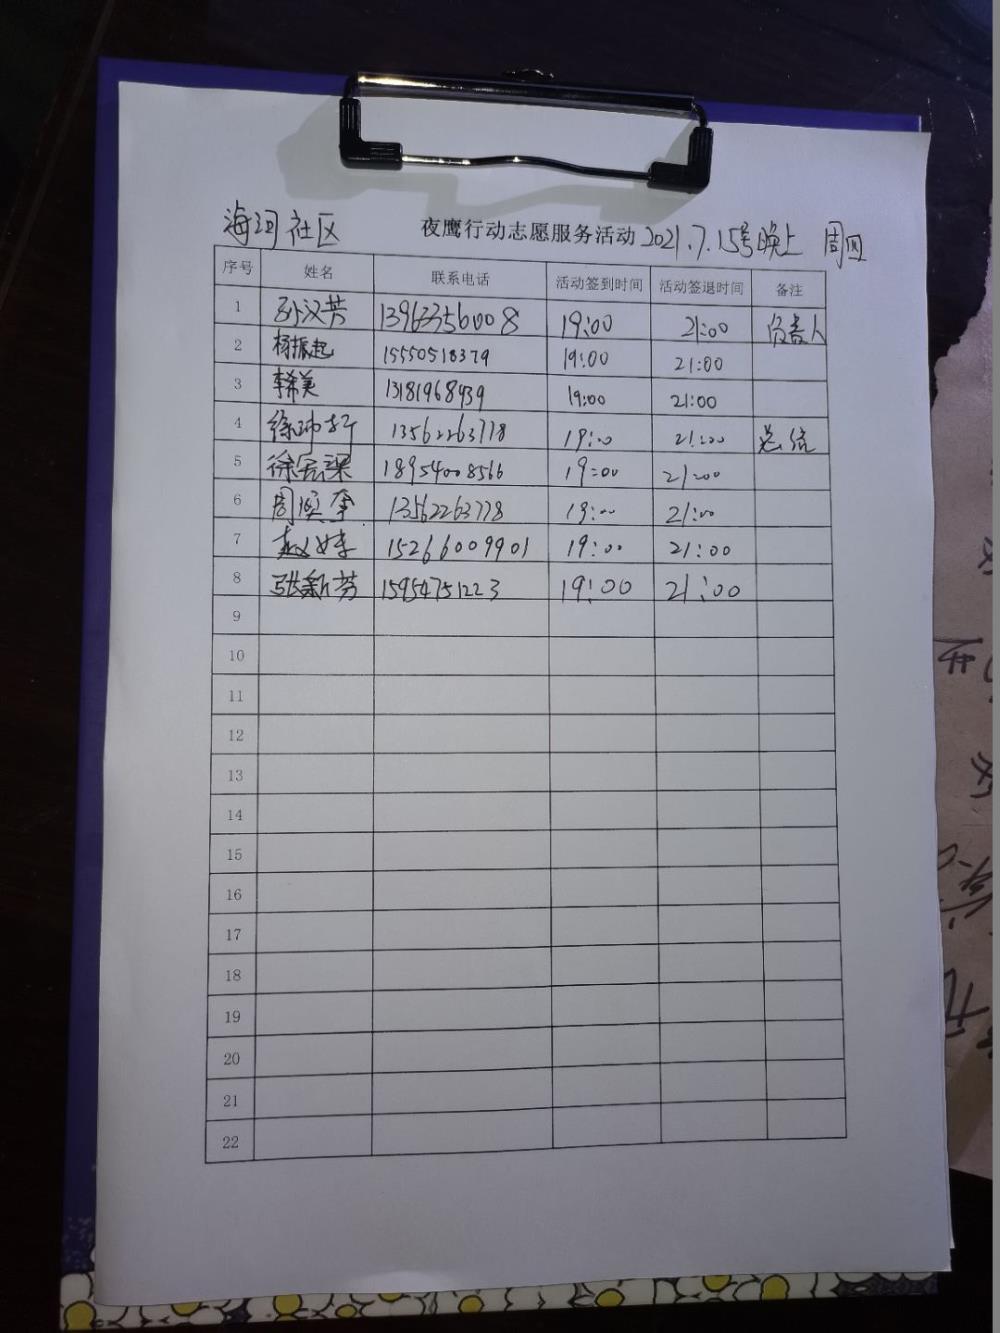 海河社区 夜鹰行动志愿服务活动 2021.7.15号晚上 周四
序号 姓名 联系电话 活动签到时间 活动签退时间 备注
1 孙汉芳 13963356008 19:00 21:00 负责人
2 杨振起 15550518379 19:00 21:00
3 李美 13181968939 19:00 21:00
4 徐 13562263778 19:00 21:00
5 徐 梁 18954008566 19:00 21:00
6 周 13562263778 19:00 21:00
7 赵 15266009901 19:00 21:00
8 张新芳 15954751223 19:00 21:00
9
10
11
12
13
14
15
16
17
18
19
20
21
22